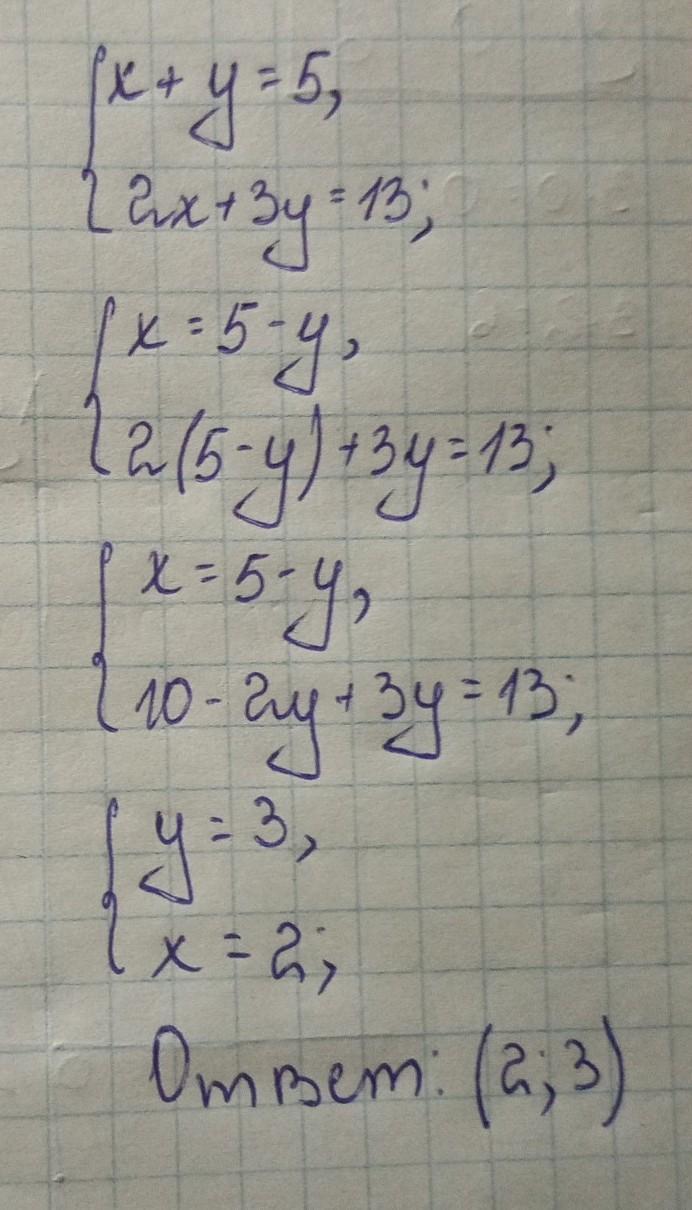 x + y = 5,
2x + 3y = 13;
x = 5 - y,
2(5 - y) + 3y = 13;
x = 5 - y,
10 - 2y + 3y = 13;
y = 3,
x = 2;
Ответ: (2; 3)